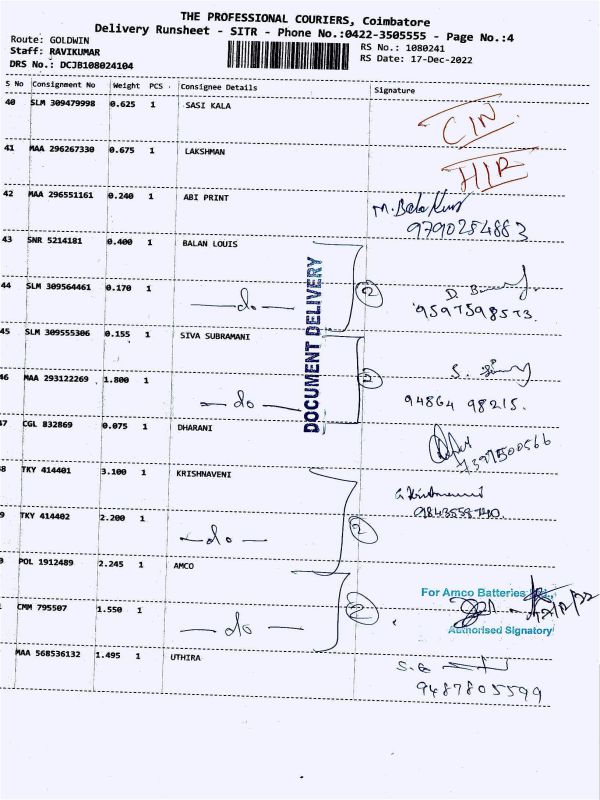 THE PROFESSIONAL COURIERS, Coimbatore
Delivery Runsheet - SITR - Phone No.:0422-3505555 - Page No.:4
Route: GOLDWIN
Staff: RAVIKUMAR
DRS No.: DCJB108024104
RS No.: 1080241
RS Date: 17-Dec-2022
S No Consignment No Weight PCS Consignee Details Signature
40 SLM 309479998 0.625 1 SASI KALA CIN
41 MAA 296267330 0.675 1 LAKSHMAN HIR
42 MAA 296551161 0.240 1 ABI PRINT M. Bala
9790254883
43 SNR 5214181 0.400 1 BALAN LOUIS
DOCUMENT DELIVERY
44 SLM 309564461 0.170 1 do 2 D. 
9597598573.
45 SLM 309555306 0.155 1 SIVA SUBRAMANI S.
46 MAA 293122269 1.800 1 do 2
94864 98215.
47 CGL 832869 0.075 1 DHARANI
7397500566
8 TKY 414401 3.100 1 KRISHNAVENI
9843558740.
9 TKY 414402 2.200 1 do 2
POL 1912489 2.245 1 AMCO
For Amco Batteries
CMM 795507 1.550 1 do 2
Authorised Signatory
MAA 568536132 1.495 1 UTHIRA
9487805599